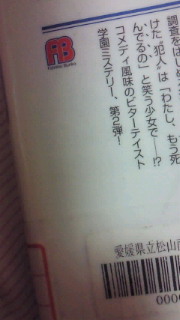 調査をはじめ
けた"犯人"は「わたし、もう死
んでるの」と笑う少女で──!?
コメディ風味のビターテイスト
学園ミステリー、第2弾!
愛媛県立松山西
0000